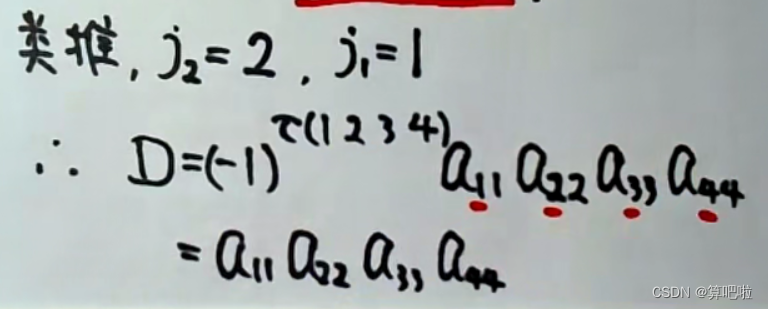 类推, j₂=2, j₁=1
∴ D=(-1)^τ(1 2 3 4) a₁₁ a₂₂ a₃₃ a₄₄
= a₁₁ a₂₂ a₃₃ a₄₄
CSDN @算吧啦